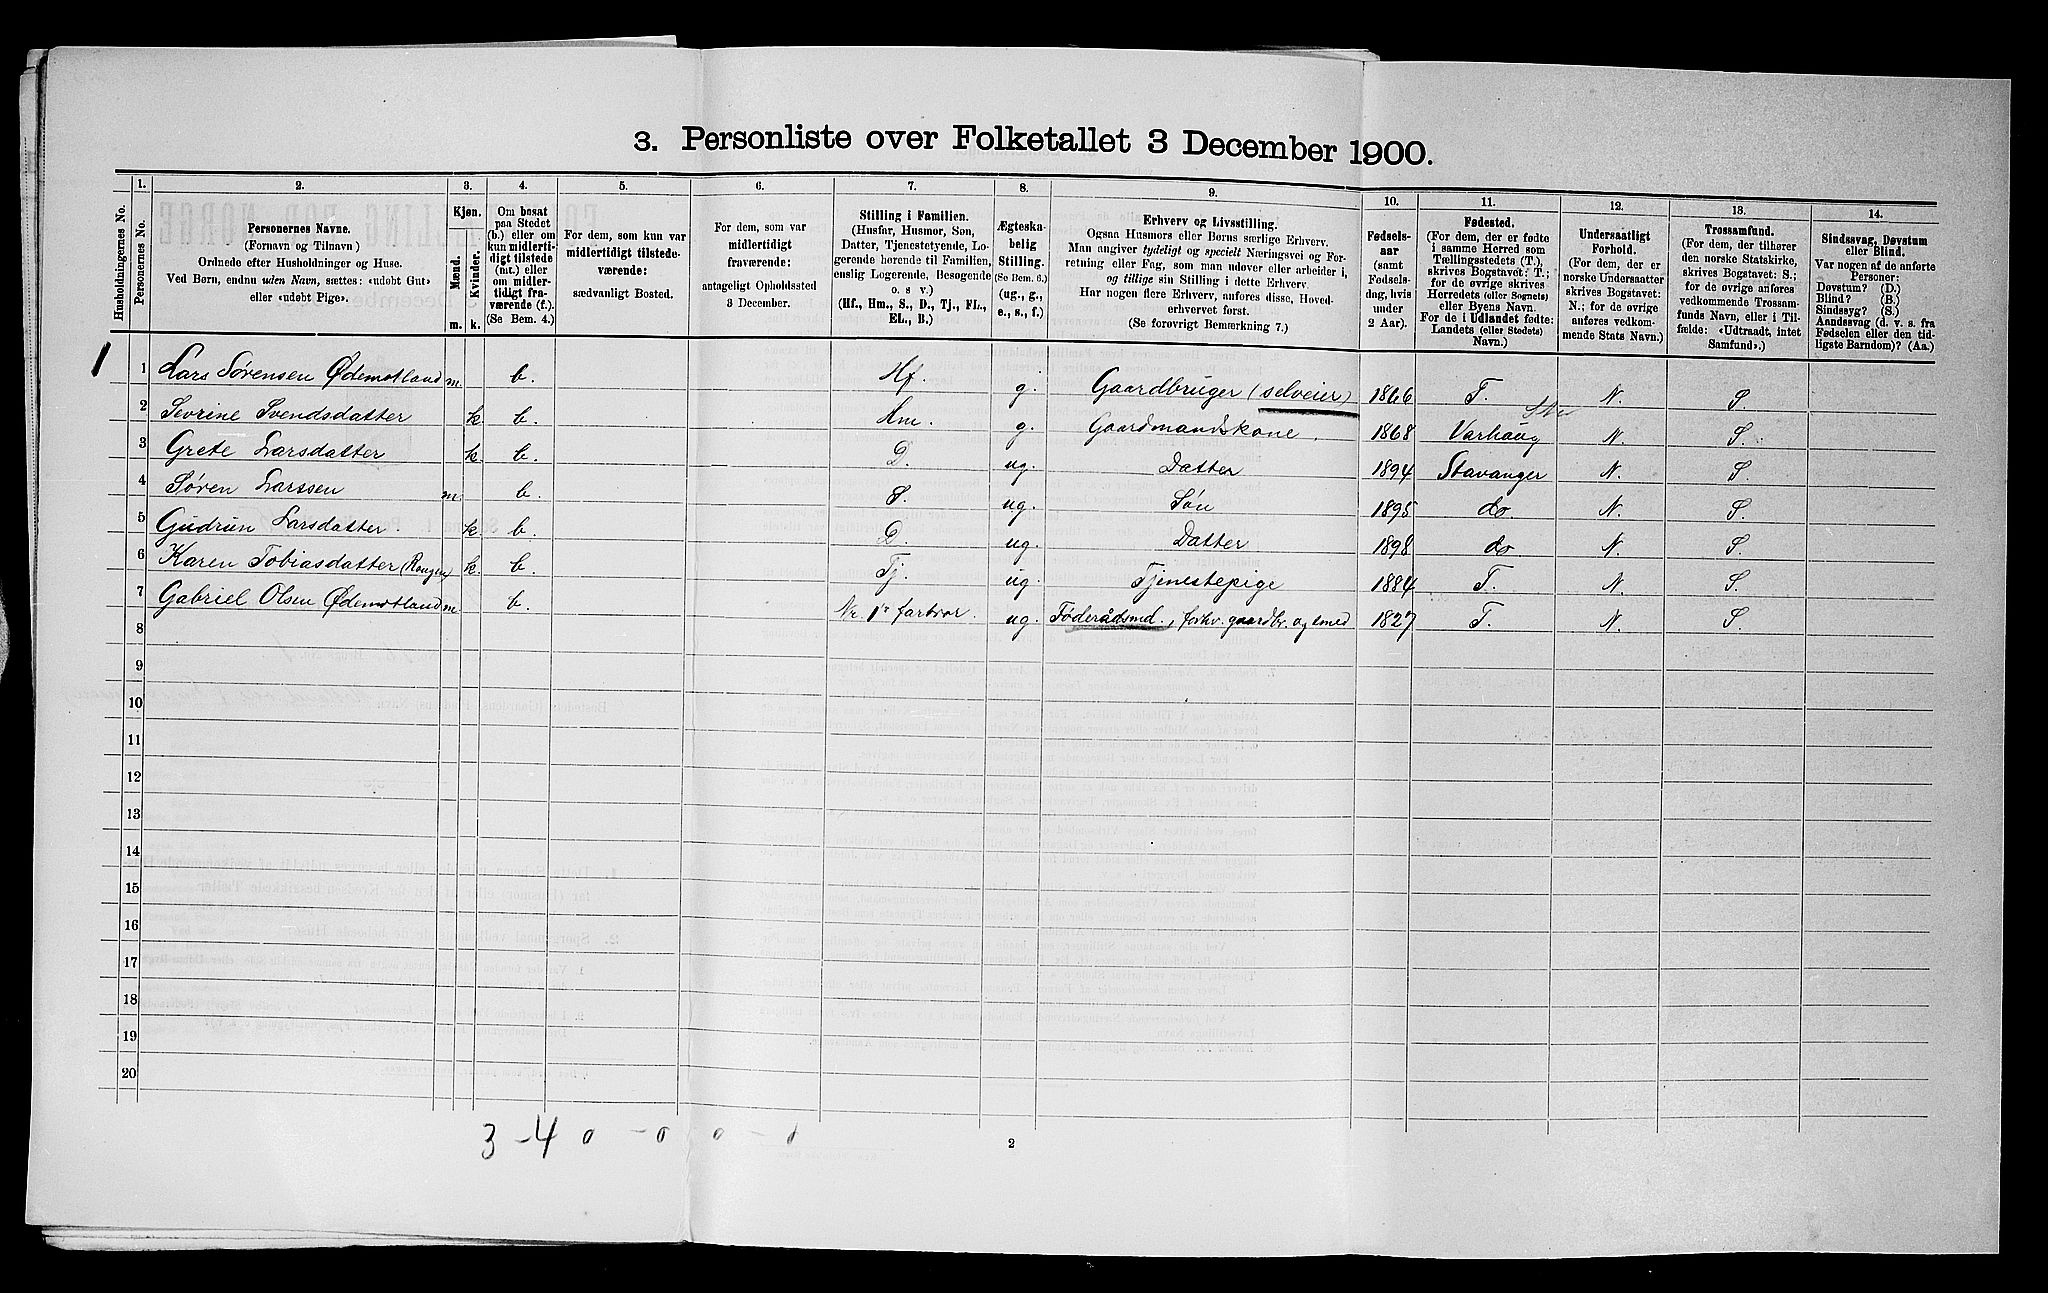 3. Personliste over Folketallet 3 December 1900.
1. 2. 3. 4. 5. 6. 7. 8. 9. 10. 11. 12. 13. 14.
Husholdningernes No.
Personernes No.
Personernes Navne.
(Fornavn og Tilnavn)
Ordnede efter Husholdninger og Huse.
Ved Børn, endnu uden Navn, sættes: «udøbt Gut»
eller «udøbt Pige».
Kjøn.
Mænd.
Kvinder.
m. k.
Om bosat
paa Stedet
(b.) eller om
kun midlerti-
digt tilstede
(mt.) eller
om midler-
tidigt fra-
værende (f.).
(Se Bem. 4.)
For dem, som kun var
midlertidigt tilstede-
værende:
sædvanligt Bosted.
For dem, som var
midlertidigt
fraværende:
antageligt Opholdssted
3 December.
Stilling i Familien.
(Husfar, Husmor, Søn,
Datter, Tjenestetyende, Lo-
gerende hørende til Familien,
enslig Logerende, Besøgende
o. s. v.)
(Hf., Hm., S., D., Tj., FL.,
EL., B.)
Ægteska-
belig
Stilling.
(Se Bem. 6.)
(ug., g.,
e., s., f.)
Erhverv og Livsstilling.
Ogsaa Husmors eller Børns særlige Erhverv.
Man angiver tydeligt og specielt Næringsvei og For-
retning eller Fag, som man udøver eller arbeider i,
og tillige sin Stilling i dette Erhverv.
Har nogen flere Erhverv, anføres disse, Hoved-
erhvervet først.
(Se forøvrigt Bemærkning 7.)
Fødsels-
aar
(samt
Fødsels-
dag, hvis
under
2 Aar).
Fødested.
(For dem, der er fødte
i samme Herred som
Tællingsstedets (T.),
skrives Bogstavet: T.;
for de øvrige skrives
Herredets (eller Sognets)
eller Byens Navn.
For de i Udlandet fødte:
Landets (eller Stedets)
Navn.)
Undersaatligt
Forhold.
(For dem, der er
norske Undersaatter
skrives Bogstavet:
N.; for de øvrige
anføres vedkom-
mende Stats Navn.)
Trossamfund.
(For dem, der tilhører
den norske Statskirke,
skrives Bogstavet: S.;
for de øvrige anføres
vedkommende Trossam-
funds Navn, eller i Til-
fælde: «Udtraadt, intet
Samfund».)
Sindssvag, Døvstum
eller Blind.
Var nogen af de anførte
Personer:
Døvstum? (D.)
Blind? (B.)
Sindssyg? (S.)
Aandssvag (d. v. s. fra
Fødselen eller den tid-
ligste Barndom)? (Aa.)
1 1 Lars Sørensen Ødemotland m. b. Hf. g. Gaardbruger (selveier) 1866 T. N. S.
2 Sevrine Svendsdatter k b. Hm. g. Gaardmandskone. 1868 Varhaug N. S.
3 Grete Larsdatter k. b. D. ug. Datter 1894 Stavanger N. S.
4 Søren Larssen m b. S. ug. Søn 1895 do. N. S.
5 Gudrun Larsdatter. k. b. D. ug. Datter 1898 do N. S.
6 Karen Tobiasdatter k. b. Tj. ug. Tjenestepige 1884 T. N. S.
7 Gabriel Olsen Ødemotland m b. No. 1s farbror. ug. Føderådsmd., forhv. gaardbr. og smed 1827 T. N. S.
8
9
10
11
12
13
14
15
16
17
18
19
20
3 – 4 0 – 0 0 – 0
2